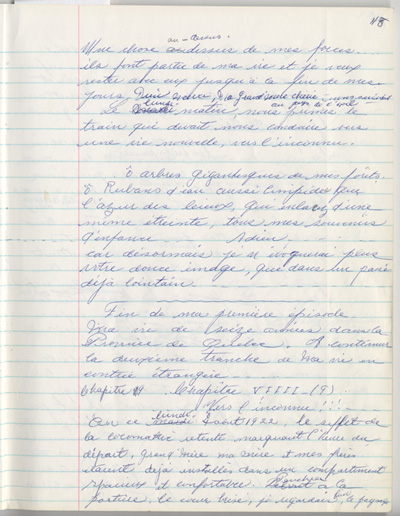 N8
au-dessus.
Une chose au dessus de mes forces.
ils font partie de ma vie et je veux
rester avec eux jusqu'à la fin de mes
jours
au pays de l'exil
lundi
Le matin, nous prîmes le
train qui devait nous conduire vers
une vie nouvelle, vers l'inconnu.
Ô arbres gigantesques de mes forêts.
Ô Rubans d'eau aussi limpides que
l'azur des cieux, qui enlacez d'une
même étreinte, tous mes souvenirs
d'enfance Adieu,
car désormais je n'évoquerai plus
votre douce image, que dans un passé
déjà lointain.
Fin de ma première épisode
Ma vie de seize années dans la
Province de Québec. À continuer
la deuxième tranche de Ma vie en
contrée étrangère
Chapitre 9 Chapitre VIIII - (9)
Vers l'inconnu!!!
lundi
En ce mardi août 1922, le sifflet de
la locomotive retentit marquant l'heure du
départ, Grand'Mère ma mère et mes frères
étaient déjà installés dans un compartiment
spacieux et confortable.
portière, le coeur brisé, je regardais le paysage